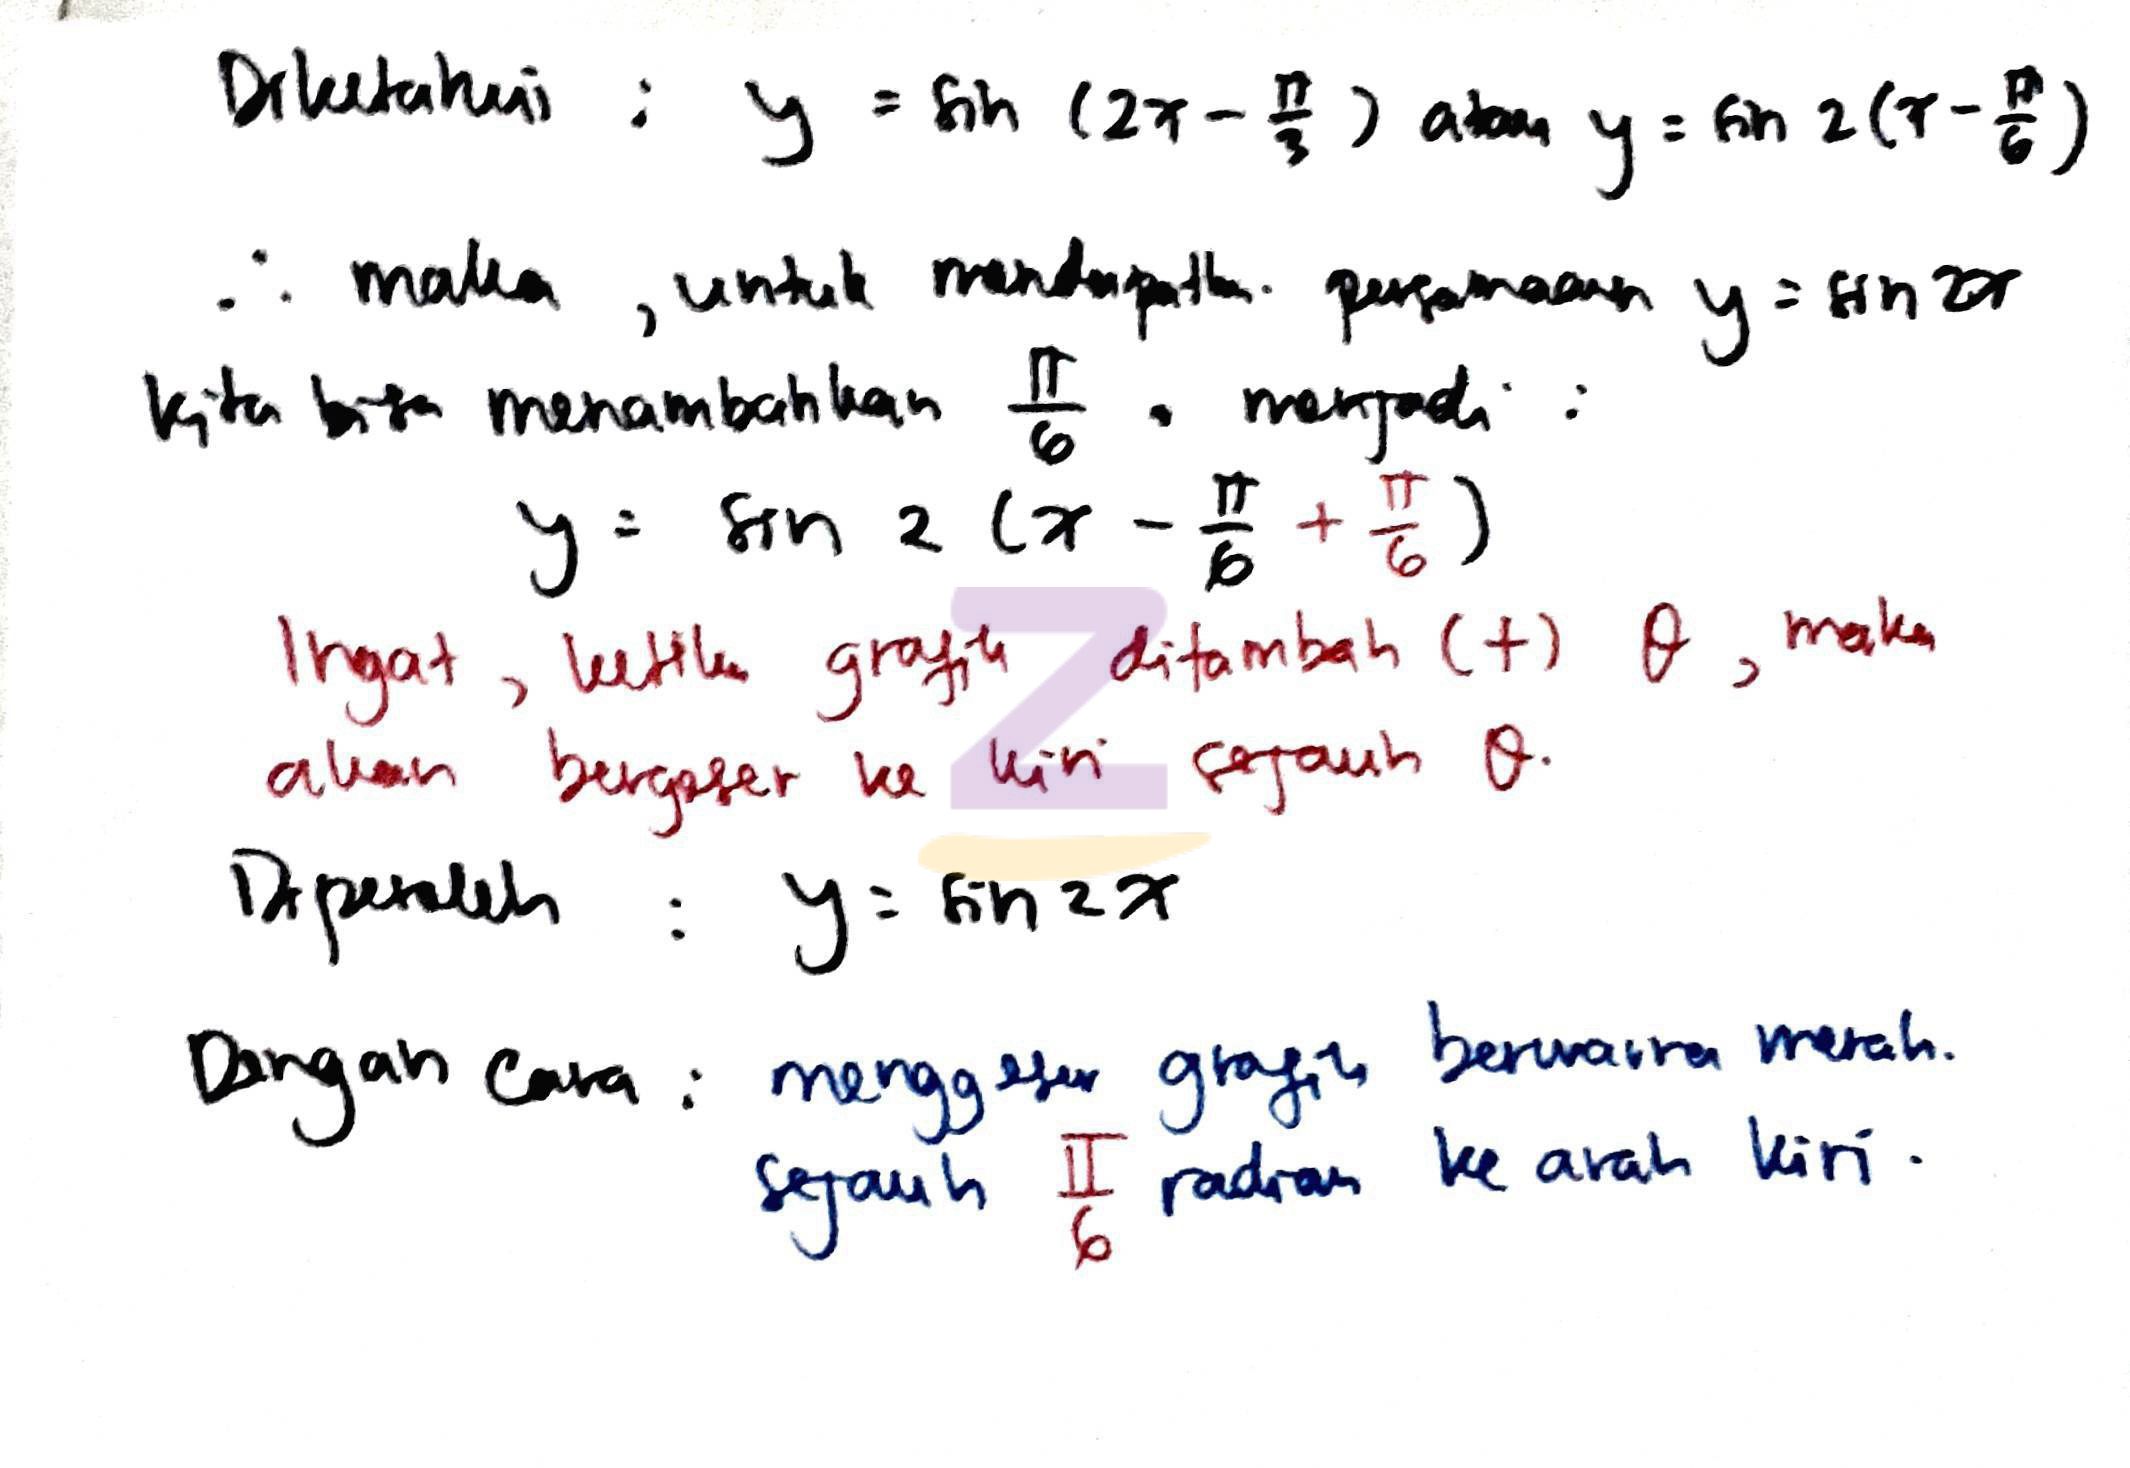 Diketahui : y = sin (2x - π/3) atau y = sin 2(x - π/6)
∴ maka, untuk mendapatkan persamaan y = sin 2x
kita bisa menambahkan π/6 . menjadi :
y = sin 2 (x - π/6 + π/6)
Ingat, ketika grafik ditambah (+) θ, maka
akan bergeser ke kiri sejauh θ.
Diperoleh : y = sin 2x
Dengan cara : menggeser grafik berwarna merah.
sejauh π/6 radian ke arah kiri.
Z